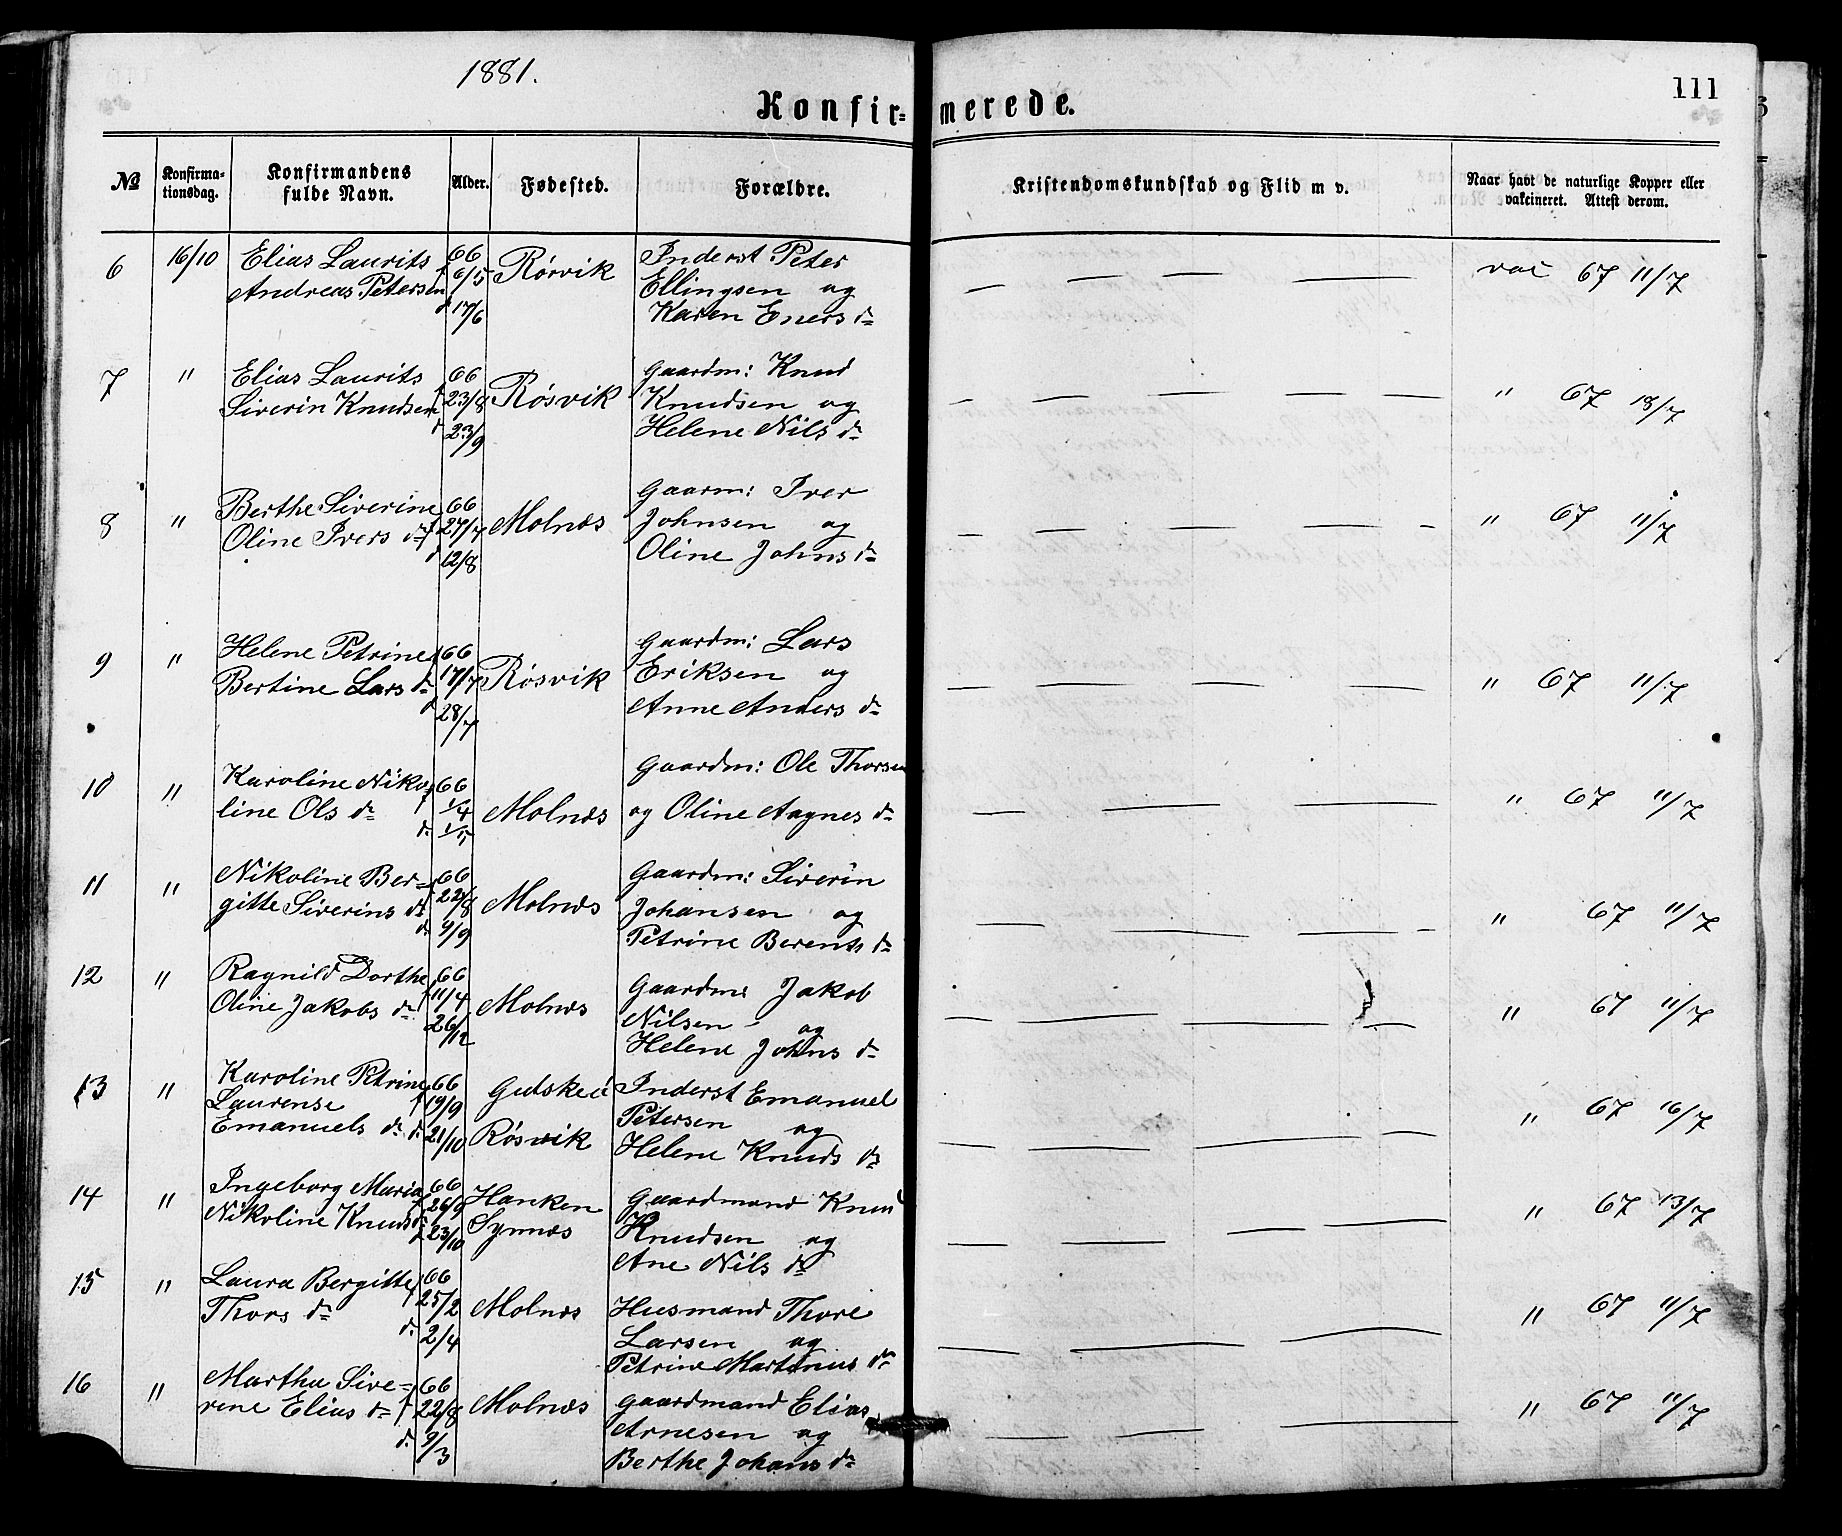 1881.
111
Konfir-merede.
No
Konfirma-
tionsdag.
Konfirmandens
fulde Navn.
Alder.
Fødested.
Forældre.
Kristendomskundskab og Flid m v.
Naar havt de naturlige Kopper eller
vakcineret. Attest derom.
6 16/10 Elias Laurits 66 Inderst Peter
Andreas Petersen f 6/5 Rørvik Ellingsen og vac 67 11/7
d 17/6 Karen Eners d
7 " Elias Laurits 66 Gaardm: Knud
Siverin Knudsen f 23/8 Røsvik Knudsen og " 67 18/7
d 23/9 Helene Nils d
8 " Berthe Siverine 66 Gaarm: Iver
Oline Ivers d f 27/4 Molnæs Johnsen og " 67 11/7
d 12/8 Oline Johns d
9 " Helene Petrine f 66 Gaardm: Lars
Bertine Lars d 17/7 Røsvik Eriksen og " 67 11/7
d 28/7 Anne Anders d
10 " Karoline Niko- 66 Gaardm: Ole Thorsen
line Ols d f 1/4 Molnæs og Oline Aagnes d " 67 11/7
d. 1/5
11 " Nikoline Ber- 66 Gaardm: Siverin
gitte Siverins d f 22/8 Molnæs Johansen og " 67 11/7
d. 9/9 Petrine Berents d
12 " Ragnild Dorthe 66 Gaardm: Jakob
Oline Jakobs d f 11/4 Molnæs Nilsen og " 67 11/7
26/12 Helene Johns d
13 " Karoline Petrine 66 Gidskeø Inderst Emanuel
Laurense f 19/9 Petersen og " 67 16/7
Emanuels d d. 21/10 Røsvik Helene Knuds d
14 " Ingeborg Maria 66 Hanken Gaardmand Knud
Nikoline Knuds d f 26/9 Synnæs Knudsen og " 67 13/7
d 23/10 Ane Nils d
15 " Laura Bergitte 66
Thors d f 25/2 Molnæs Husmand Thore " 67 11/7
d. 2/4 Larsen og
Petrine Martinus d
16 " Martha Sive- 66
rine Elias d f 22/8 Molnæs Gaardmand Elias " 67 11/7
d. 9/3 Arnesen og
Berthe Johans d